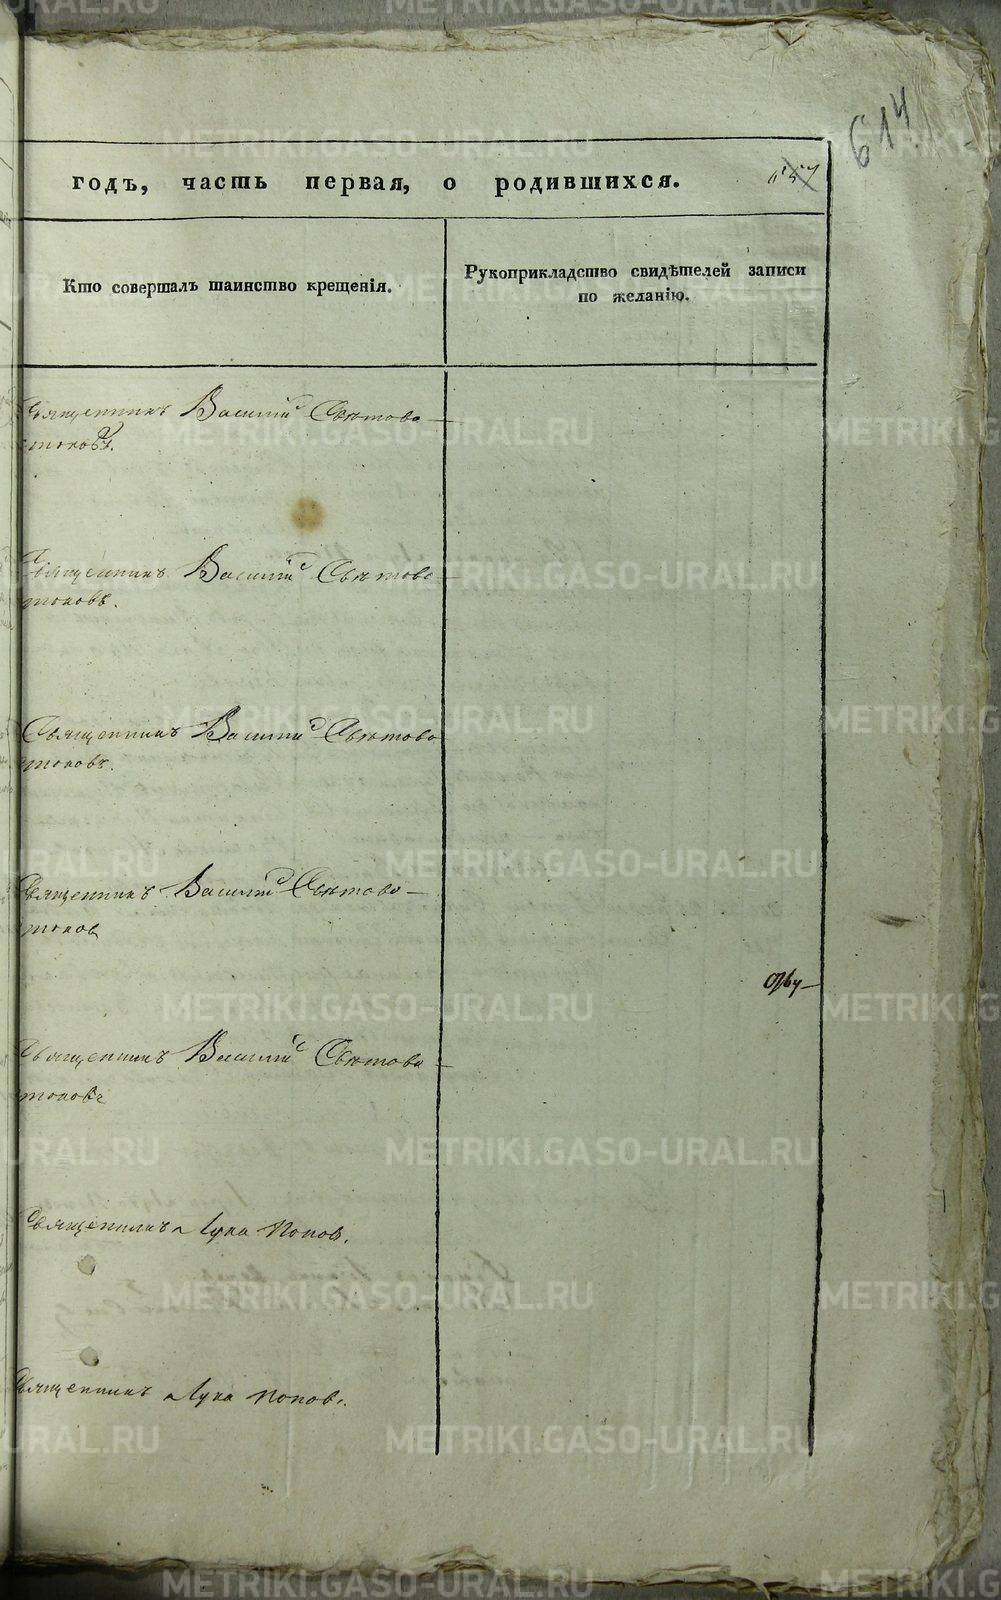 614
годъ, часть первая, о родившихся.
Кто совершалъ таинство крещенія.
Рукоприкладство свидѣтелей записи
по желанію.
Священникъ Василій Свѣтово-
токовъ.
Священникъ Василій Свѣтово-
токовъ.
Священникъ Василій Свѣтово
токовъ.
Священникъ Василій Свѣтово-
токов
Священникъ Василій Свѣтово-
токовъ
Священникъ Лука Попов.
Священникъ Лука Попов.
METRIKI.GASO-URAL.RU